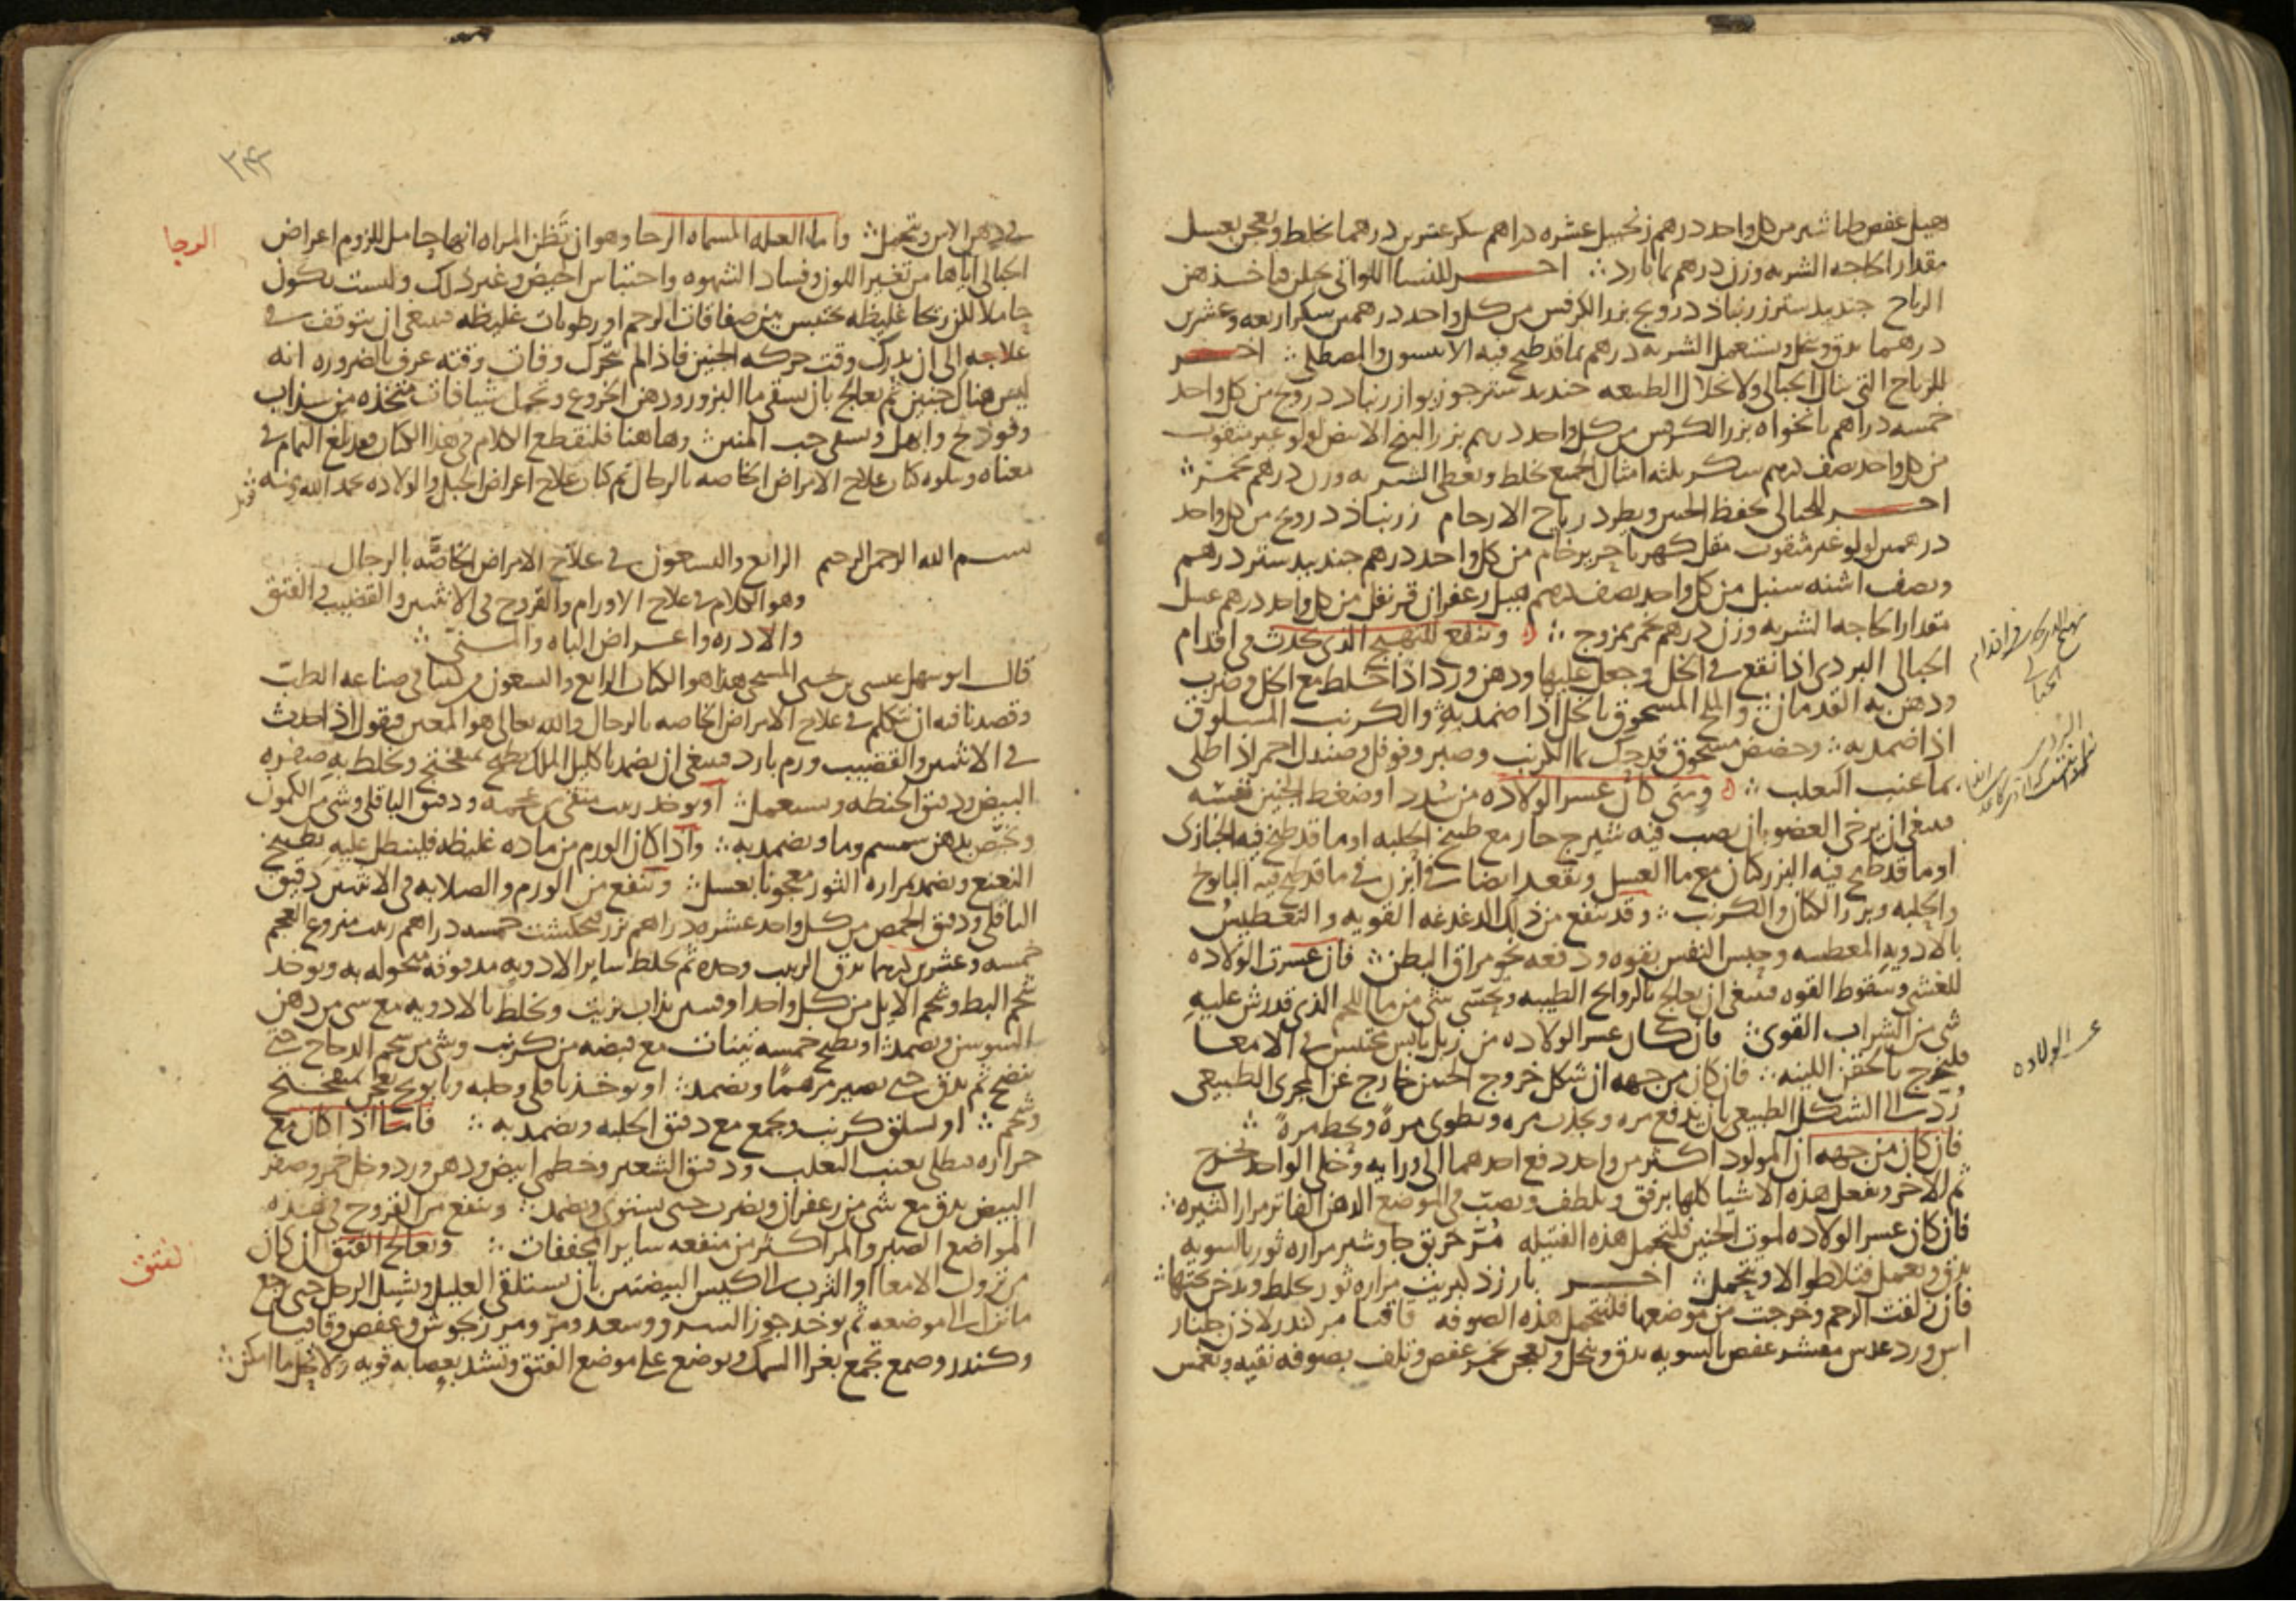 هيل عفص طباشير من كل واحد درهم زنجبيل عشره دراهم سكر عشرين درهما يخلط ويعجن بعسل
مقدار الحاجه الشربه وزن درهم بما بارد احر للنسا اللواتي يحبلن فياخذهن
الرياح جندبيدستر زرنباد درونج بزر الكرفس من كل واحد درهمين سكر اربعه وعشرين
درهما يدق ويعمل ويستعمل الشربه درهم بما قد طبخ فيه الانيسون والمصطكى اخر
للرياح التي تنال الحبالى ولانحلال الطبيعه جندبيدستر جوزبوا زرنباد درونج من كل واحد
خمسه دراهم نانخواه بزر الكرفس من كل واحد درهم بزر البنج الابيض لولو غير مثقوب
من كل واحد نصف درهم سكر ثلثه امثال الجميع يخلط ويعطى الشربه وزن درهم بخمر
اخر للحبالى يحفظ الجنين ويطرد رياح الارحام زرنباد درونج من كل واحد
درهمين لولو غير مثقوب مقل كهربا حرير خام من كل واحد درهم جندبيدستر درهم
ونصف اشنه سنبل من كل واحد نصف درهم هيل زعفران قرنفل من كل واحد درهم عسل
مقدار الحاجه الشربه وزن درهم بخمر ممزوج وينفع للتهيج الذي يحدث في اقدام
الحبالى البردي اذا نقع في الخل وجعل عليها ودهن ورد اذا خلط مع الخل وضرب
ودهن به القدمان والملح المسحوق بالخل اذا ضمد به والكرنب المسلوق
اذا ضمد به وحضض مسحوق قد حك بما الكرنب وصبر وفوفل وصندل احمر اذا طلي
بما عنب الثعلب ومتى كان عسر الولاده من شدد او ضغط الجنين نفسه
فينبغي ان يرخى العضو بان يصب فيه شيرج حار مع طبيخ الحلبه او ما قد طبخ فيه الخبازى
او ما قد طبخ فيه البزر كتان مع ما العسل وتقعد ايضا في ابزن في ما قد طبخ فيه البابونج
والحلبه وبزر الكتان والكرنب وقد ينفع من ذلك الدغدغه القويه والتعطيس
بالادويه المعطسه وحبس النفس بقوه ودفعه نحو مراق البطن فان عسرت الولاده
للغشي وسقوط القوه فينبغي ان يعالج بالروائح الطيبه ويحسى شي من ما اللحم الذي قد رش عليه
شي من الشراب القوي فان كان عسر الولاده من زبل يابس محتبس في الامعا
فليخرج بالحقن اللينه فان كان من جهه ان شكل خروج الجنين خارج عن المجرى الطبيعي
رد الى الشكل الطبيعي بان يدفع مره ويجذب مره ويطوى مره ويحط مره
فان كان من جهه ان المولود اكثر من واحد دفع احدهما الى ورايه وخلي الواحد ليخرج
ثم الاخر ويفعل هذه الاشيا كلها برفق وبلطف ويصب في الموضع الدهن الفاتر مرارا كثيره
فان كان عسر الولاده لموت الجنين فلتتحمل هذه الفتيله مر خربق جاوشير مراره ثور بالسويه
يدق ويعمل فتلا طوالا ويتحمل اخر بارزد كبريت مراره ثور يخلط ويدخن تحتها
فان زلقت الرحم وخرجت من موضعها فلتتحمل هذه الصوفه قاقيا مر كندر لاذن جلنار
اس ورد عدس مقشر عفص بالسويه يدق وينخل ويعجن بخمر عفص وتلف بصوفه نقيه وتغمس
عسر الولاده
في دهن الاس وتحمل واما العله المسماه الرحا وهو ان تظن المراه انها حامل للزوم اعراض
الرحا
الحبالى اياها من تغير اللون وفساد الشهوه واحتباس الحيض وغير ذلك وليست تكون
حاملا لكن ريحا غليظه تحتبس بين صفاقات الرحم او رطوبات غليظه فينبغي ان يتوقف في
علاجه الى ان يدرك وقت حركه الجنين فاذا لم تتحرك وفات وقته عرف بالضروره انه
ليس هناك جنين ثم يعالج بان يسقى ما البزور ودهن الخروع وتحمل شيافات متخذه من سذاب
وفوذنج وابهل ويسقى حب المنتن وهاهنا فلنقطع الكلام في هذا الكتاب فقد بلغ التمام في
معناه ويتلوه كتاب علاج الامراض الخاصه بالرجال تم كتاب علاج اعراض الحبل والولاده بحمد الله ومنه
بسم الله الرحمن الرحيم الرابع والتسعون في علاج الامراض الخاصه بالرجال
وهو الكلام في علاج الاورام والقروح في الانثيين والقضيب في الفتق
والادره واعراض الباه والمني
قال ابو سهل عيسى بن يحيى المسيحي هذا هو الكتاب الرابع والتسعون من كتبنا في صناعه الطب
وقصدنا فيه ان نتكلم في علاج الامراض الخاصه بالرجال والله تعالى هو المعين فنقول اذا حدث
في الانثيين والقضيب ورم بارد فينبغي ان يضمد باكليل الملك يطبخ بميفختج ويخلط به صفره
البيض ودقيق الحنطه ويستعمل او يوخذ زبيب منقى من عجمه ودقيق الباقلى وشي من الكمون
ويخص بدهن سمسم وما ويضمد به واذا كان الورم من ماده غليظه فلينطل عليه بطبيخ
النعنع ويضمد بمراره الثور معجونا بعسل وينفع من الورم والصلابه في الانثيين دقيق
الباقلى ودقيق الحمص من كل واحد عشره دراهم بزر فنجنكشت خمسه دراهم زبيب منزوع العجم
خمسه وعشرين درهما يدق الزبيب وحده ثم يخلط ساير الادويه مدقوقه منخوله به ويوخذ
شحم البط وشحم الايل من كل واحد اوقيتين يذاب بزيت ويخلط بالادويه مع شي من دهن
السوسن ويضمد او يطبخ خمسه تينات مع قبضه من كرنب وشي من شحم الدجاج حتى
ينضج ثم يدق حتى يصير مرهما ويضمد او يوخذ باقلى وحلبه وبابونج يعجن بميفختج
وشحم او يسلق كرنب ويجمع مع دقيق الحلبه ويضمد به فاما اذا كان مع
حراره فيطلى بعنب الثعلب ودقيق الشعير وخطمي ابيض ودهن ورد وخل خمر وصفر
البيض يدق مع شي من زعفران ويضرب حتى يستوي ويضمد وينفع من القروح في هذه
المواضع الصبر والمر اكثر من منفعه ساير المجففات ويعالج الفتق ان كان
لفتق
من نزول الامعا او الثرب الى كيس البيضتين بان يستلقي العليل ويشيل الرجل حتى يرجع
ما نزل الى موضعه ثم يوخذ جوز السرو وسعد ومر ومرزنجوش وعفص وقاقيا
وكندر وصمغ تجمع بغرا السمك ويوضع على موضع الفتق وتشد بعصابه قويه ولا تحل ما امكن